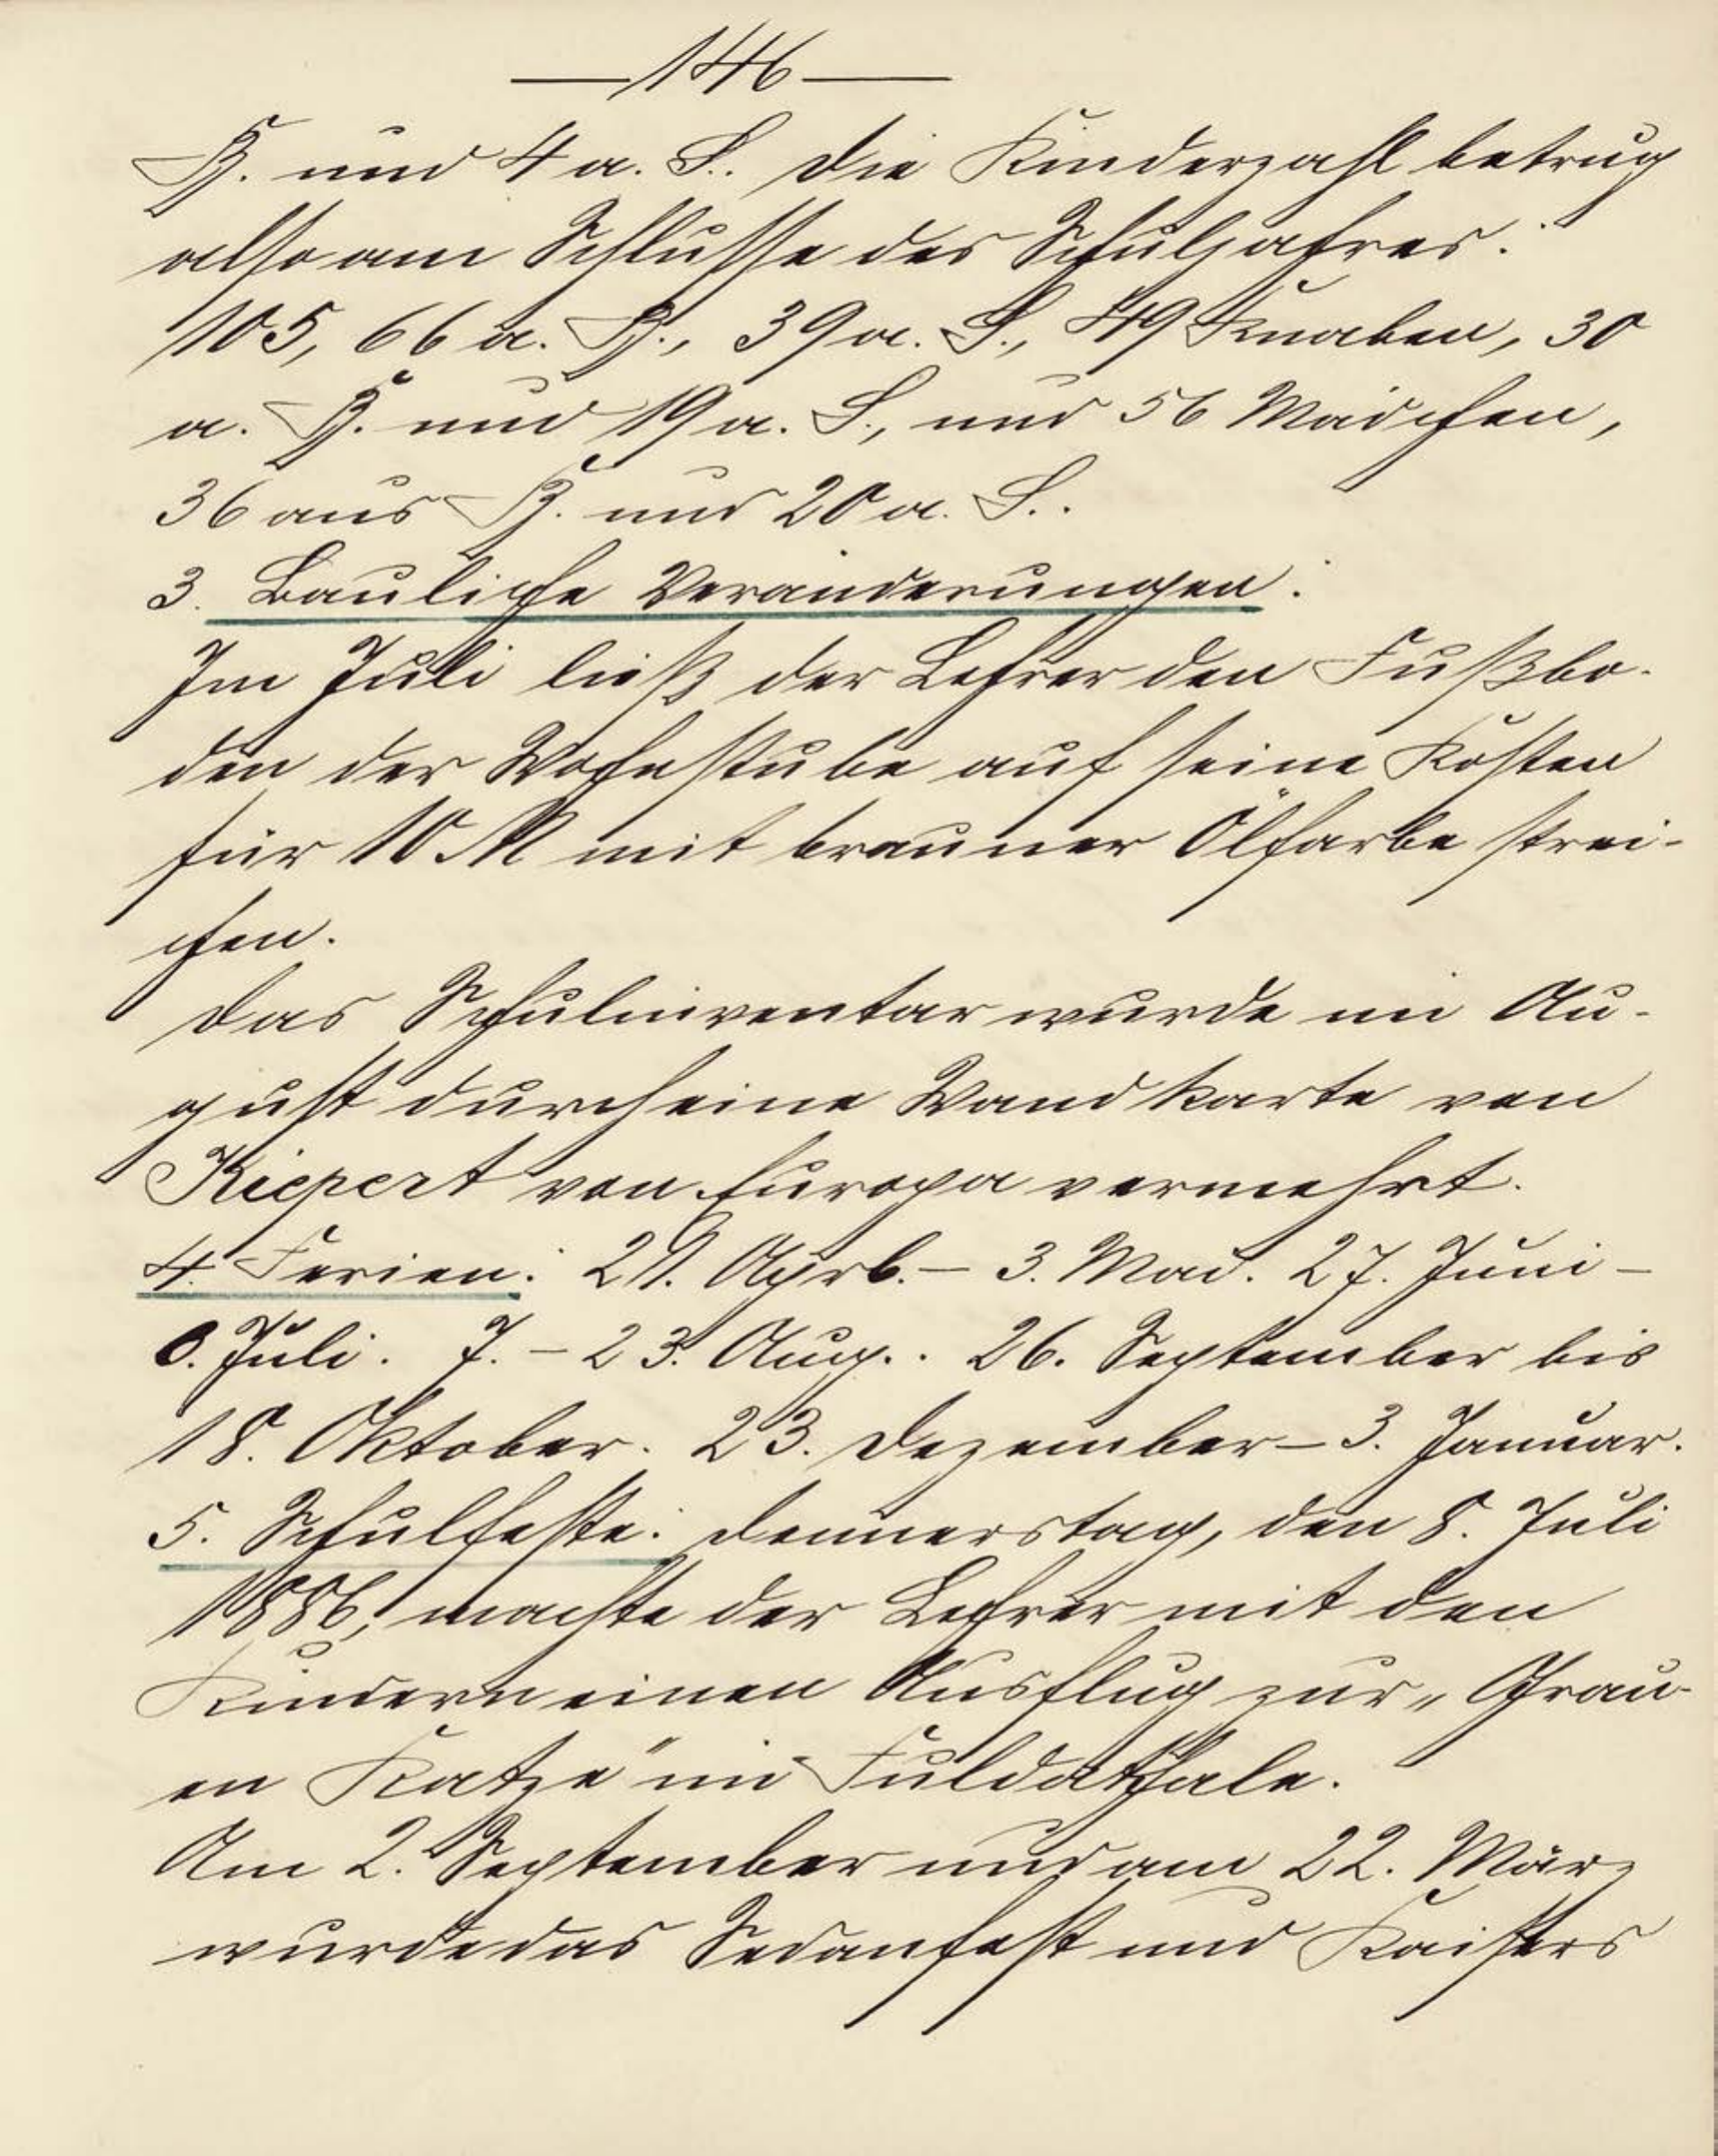 —146—
P. und 4 a. S.. Die Kinderzahl betrug
also am Schlusse des Schuljahres:
105, 66 a. P., 39 a. S., 49 Knaben, 30
a. P. und 19 a. S., und 56 Mädchen,
36 aus P. und 20 a. S..
3. Bauliche Veränderungen:
Im Juli ließ der Lehrer den Fußbo-
den der Wohnstube auf seine Kosten
für 10 M mit brauner Ölfarbe strei-
chen.
Das Schulinventar wurde im Au-
gust durch eine Wandkarte von
Kiepert von Europa vermehrt.
4. Ferien: 21. April.– 3. Mai. 27. Juni –
Juli. 7. – 23. Aug.. 26. September bis
18. Oktober. 23. Dezember – 3. Januar.
5. Schulfeste: Donnerstag, den 8. Juli
1886, machte der Lehrer mit den
Kindern einen Ausflug zur „Grau-
en Katze" im Fuldathale.
Am 2. September und am 22. März
wurde das Sedanfest und Kaisers